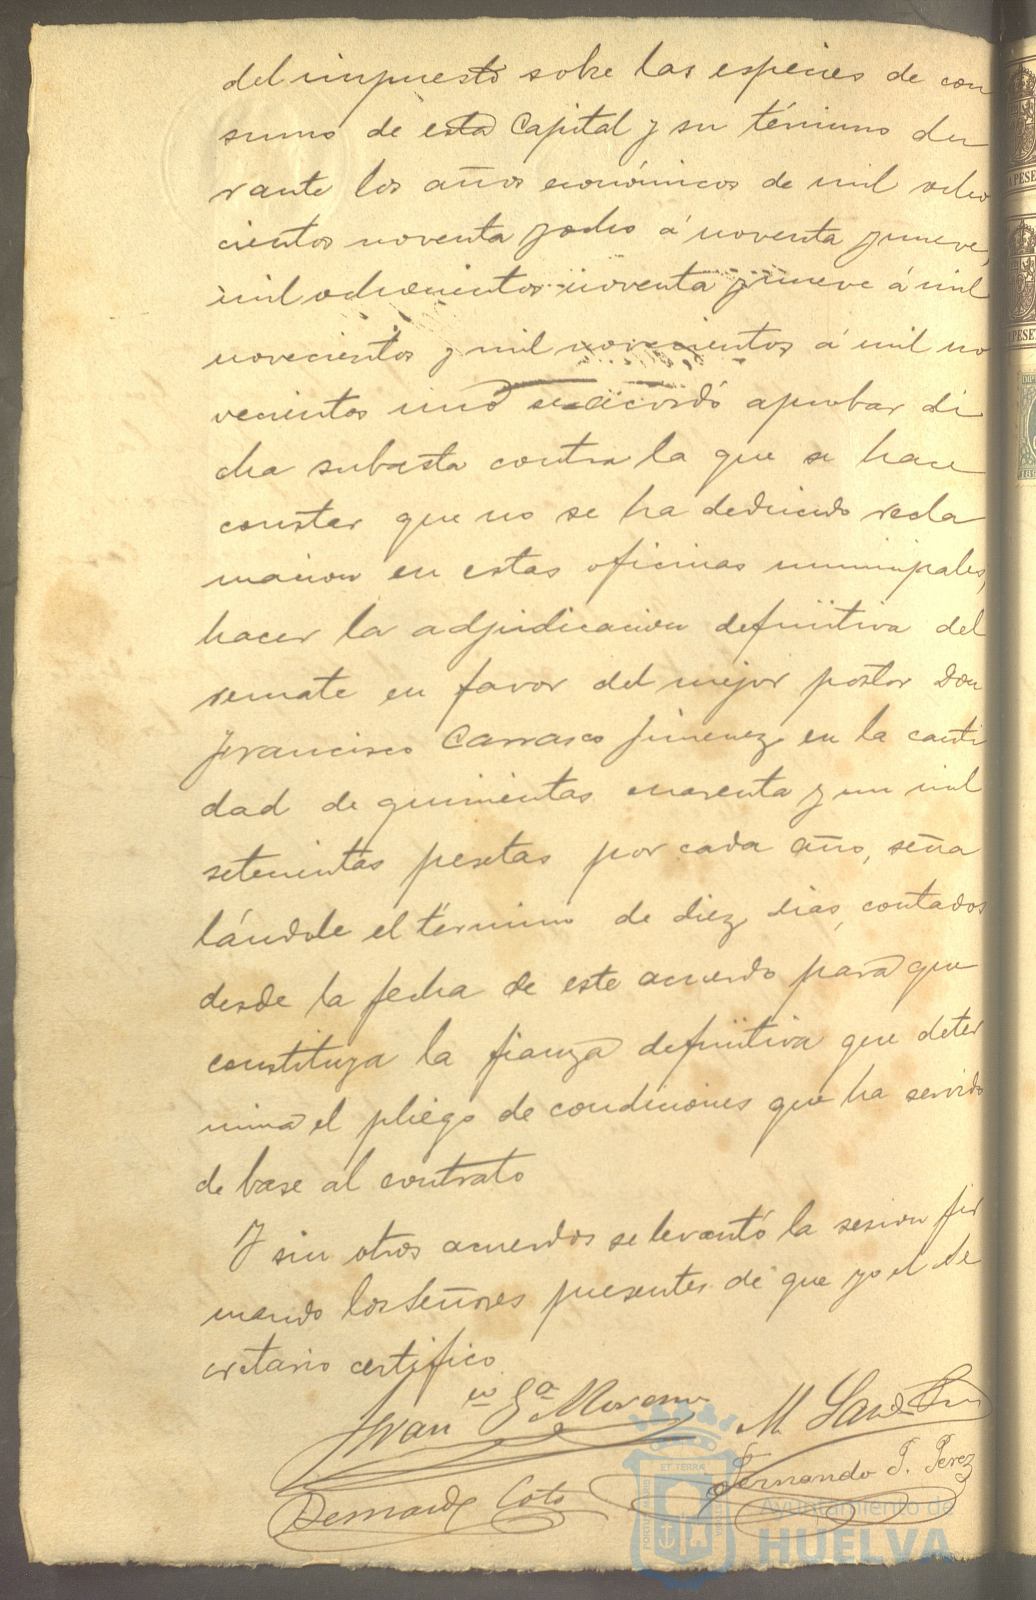 del impuesto sobre las especies de con
sumo de esta Capital y su término du
rante los años económicos de mil ocho
cientos noventa y ocho á noventa y nueve,
mil ochocientos noventa y nueve á mil
novecientos y mil novecientos á mil no
vecientos uno se acordó aprobar di
cha subasta contra la que se hace
constar que no se ha deducido recla
macion en estas oficinas municipales,
hacer la adjudicacion definitiva del
remate en favor del mejor postor Don
Francisco Carrasco Jimenez en la canti
dad de quinientas cuarenta y un mil
setecientas pesetas por cada año, seña
lándole el término de diez dias, contados
desde la fecha de este acuerdo para que
constituya la fianza definitiva que deter
mina el pliego de condiciones que ha servido
de base al contrato
Y sin otros acuerdos se levantó la sesion fir
mando los Señores presentes de que yo el Se
cretario certifico
Fran.co G.a Moreno M.
Bernardo Coto Fernando T. Perez
ET TERRA
Ayuntamiento de
HUELVA
PESE
PESE